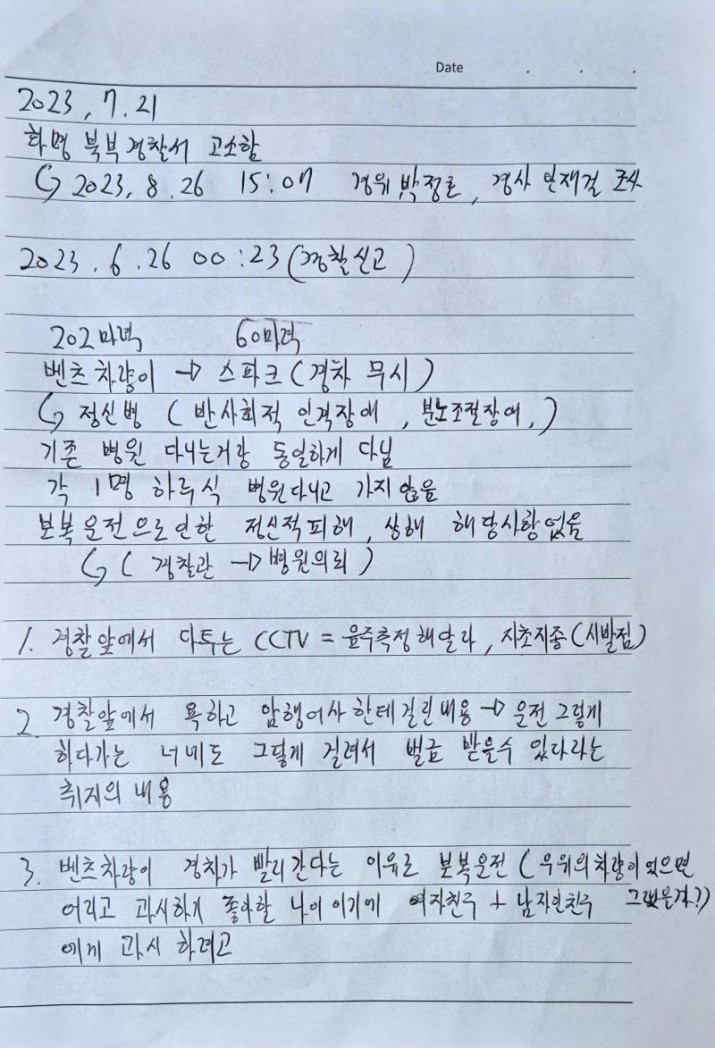 Date . . .
2023, 7. 21
화명 북부경찰서 고소함
2023, 8. 26 15:07 경위 박정호, 경사 안재걸 조사
2023. 6. 26 00:23 (경찰신고)
202마력 60마력
벤츠차량이 → 스파크 (경차 무시)
정신병 (반사회적 인격장애, 분노조절장애,)
기존 병원 다니는거랑 동일하게 다님
각 1명 하루식 병원다니고 가지않음
보복운전으로인한 정신적피해, 상해 해당사항없음
(경찰관 → 병원의뢰)
1. 경찰앞에서 다투는 CCTV = 음주측정해달라, 자초지종 (시발점)
2. 경찰앞에서 욕하고 암행어사한테걸린내용 → 운전그렇게
하다가는 너네도 그렇게 걸려서 벌금 받을수 있다라는
취지의 내용
3. 벤츠차량이 경차가 빨리간다는 이유로 보복운전 (우위의차량이었으면
어리고 과시하기 좋아할 나이이기에 여자친구 + 남자인친구 그랬을까?)
에게 과시 하려고